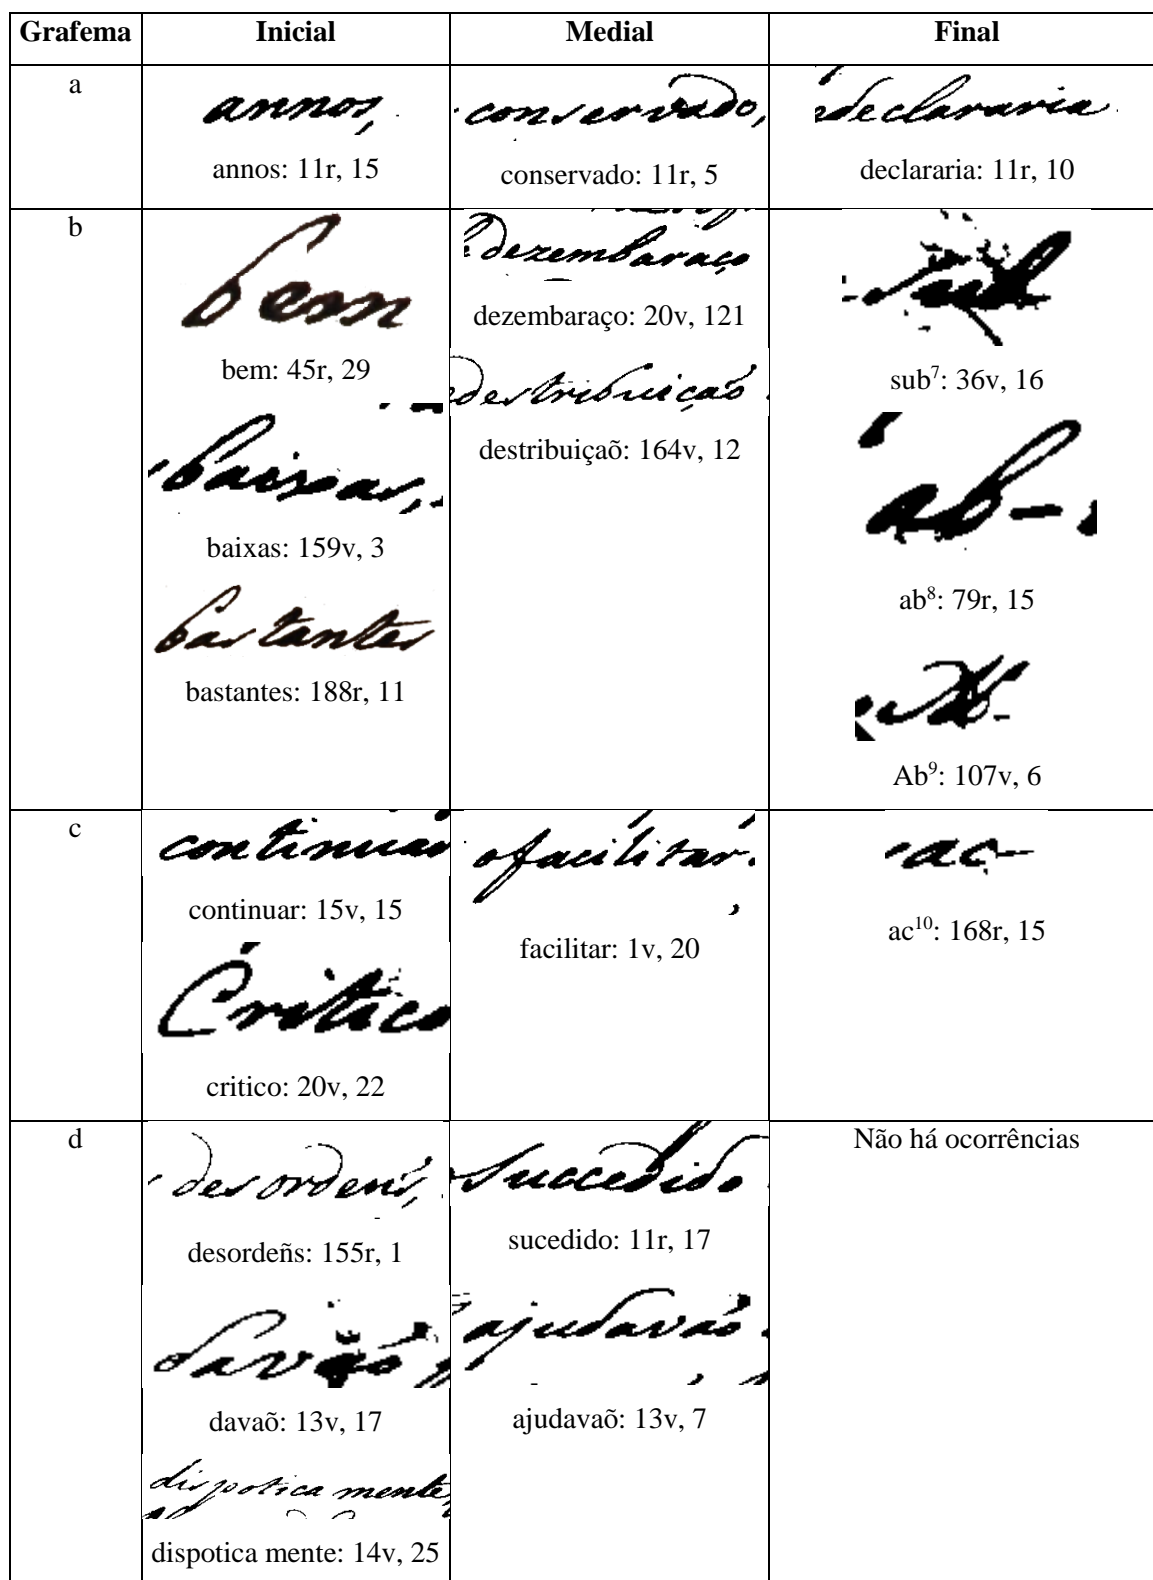 Grafema Inicial Medial Final
a
annos,
annos: 11r, 15
conservado,
conservado: 11r, 5
declararia
declararia: 11r, 10
b
bem
bem: 45r, 29
baixas,
baixas: 159v, 3
bastantes
bastantes: 188r, 11
dezembaraço
dezembaraço: 20v, 121
destribuiçaõ
destribuiçaõ: 164v, 12
sub
sub⁷: 36v, 16
ab-
ab⁸: 79r, 15
Ab-
Ab⁹: 107v, 6
c
continuar
continuar: 15v, 15
Critico
critico: 20v, 22
ofacilitar
facilitar: 1v, 20
ac-
ac¹⁰: 168r, 15
d
desordeñs,
desordeñs: 155r, 1
davaõ
davaõ: 13v, 17
dispotica mente,
dispotica mente: 14v, 25
succedido
sucedido: 11r, 17
ajudavaõ
ajudavaõ: 13v, 7
Não há ocorrências